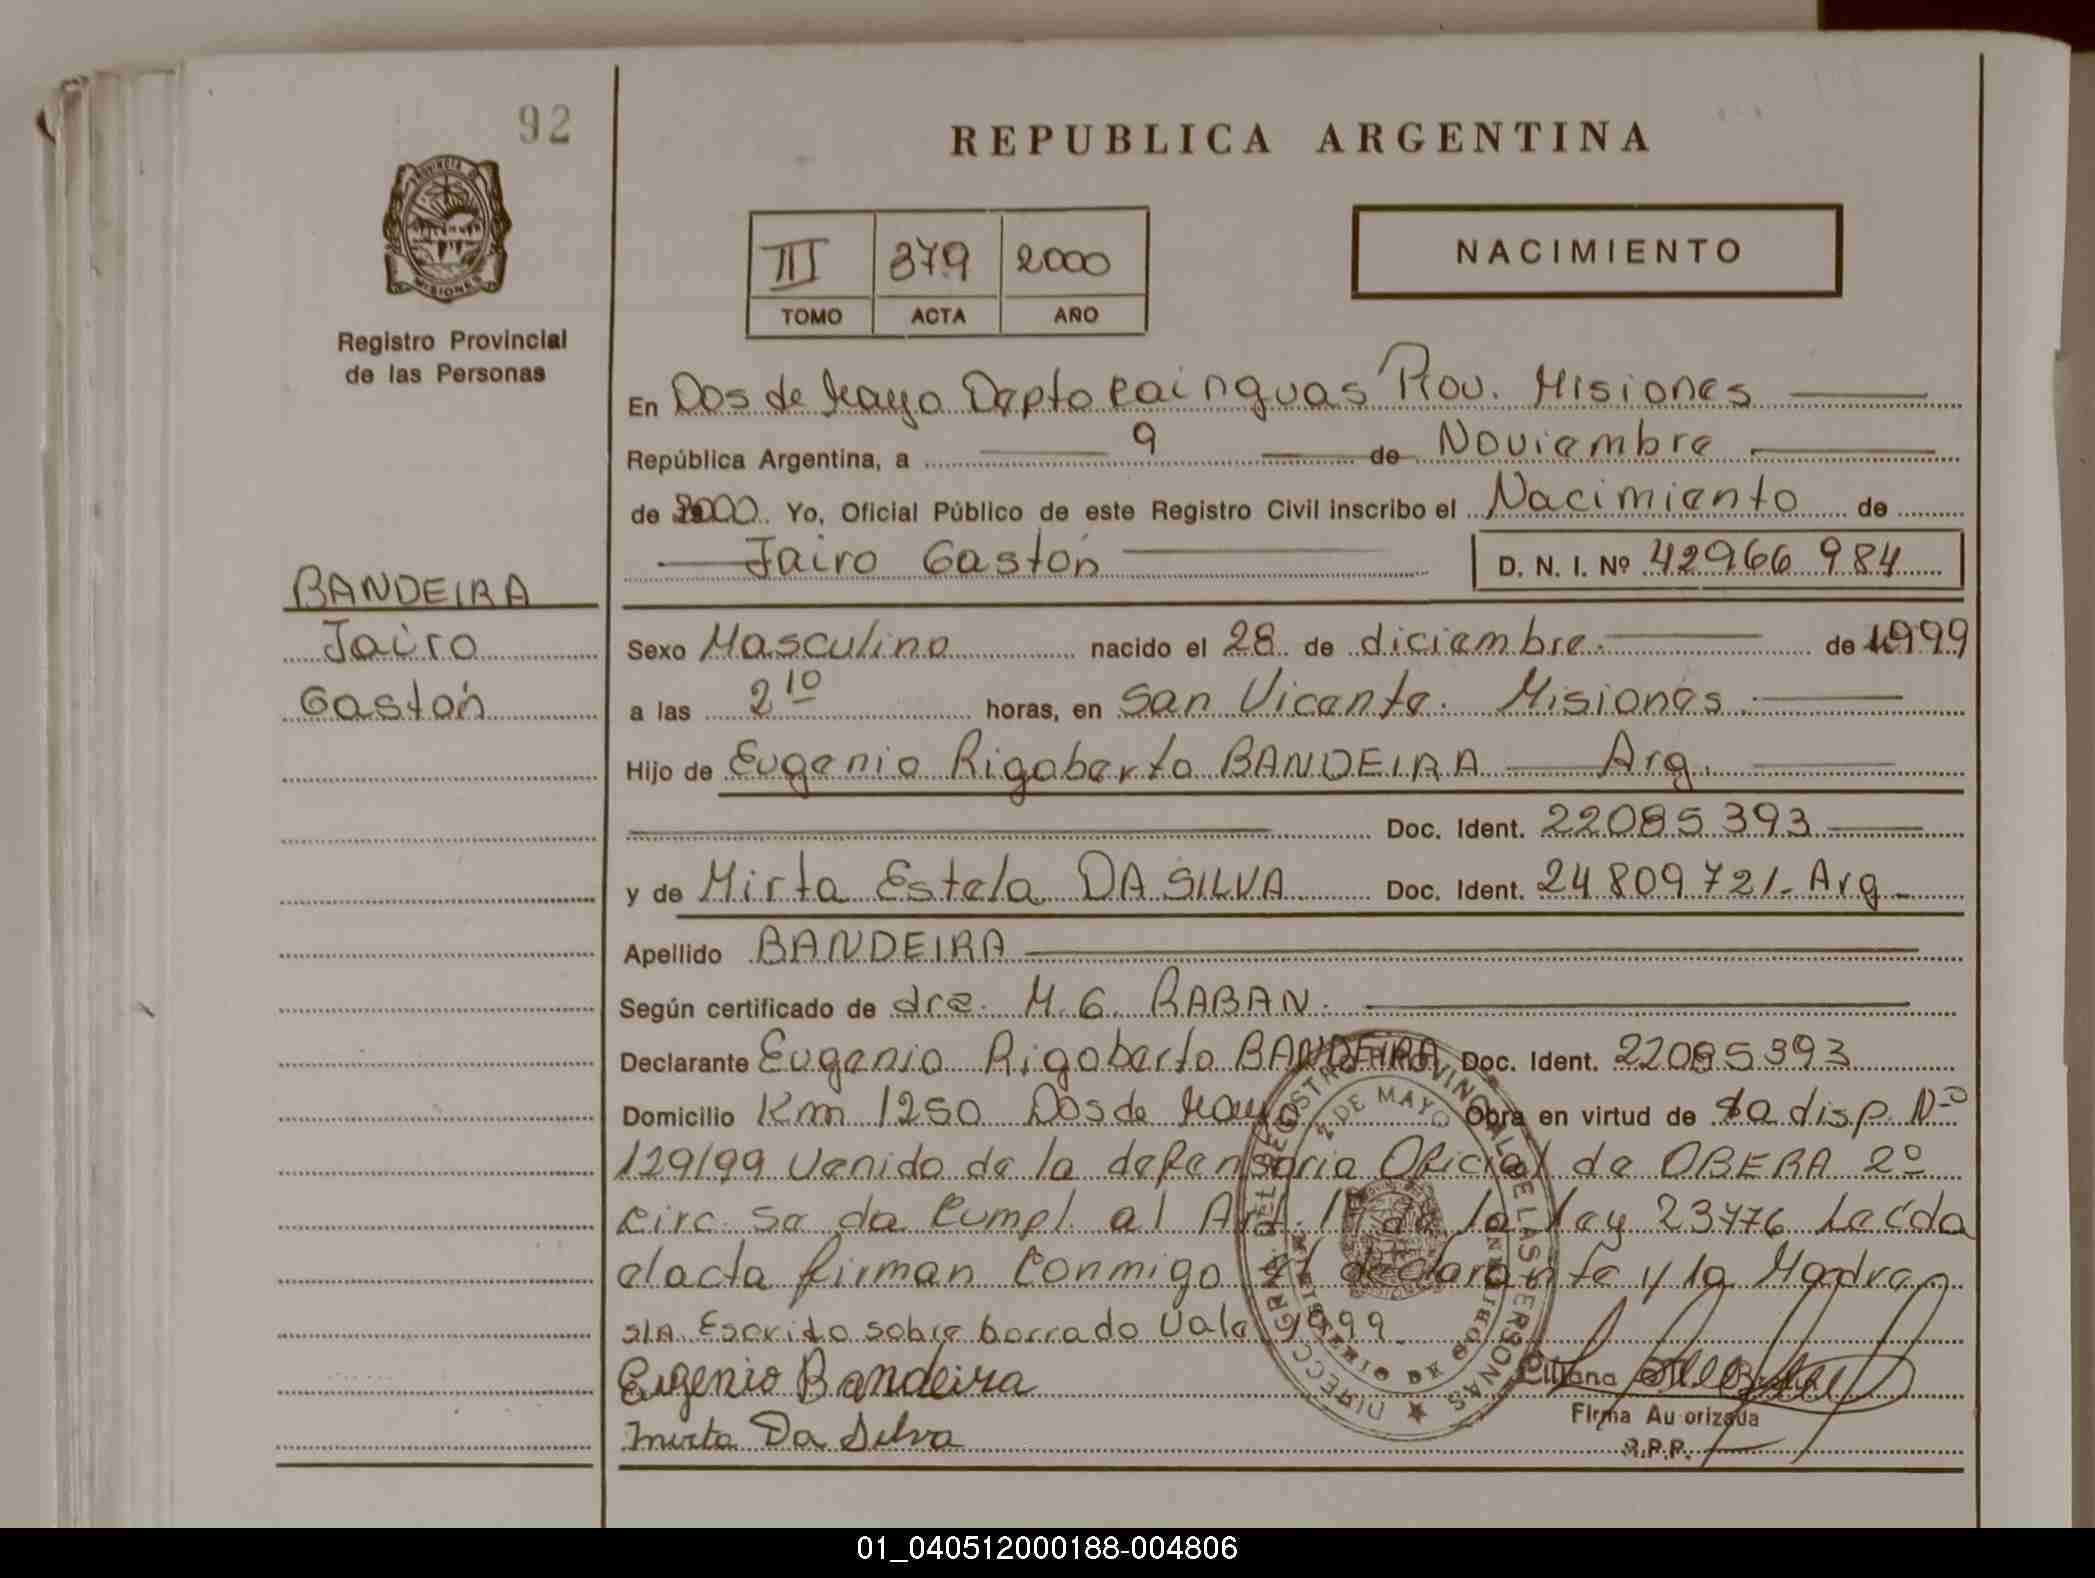 92
REPUBLICA ARGENTINA
PROVINCIA DE
MISIONES
III 379 2000
TOMO ACTA AÑO
NACIMIENTO
Registro Provincial
de las Personas
En Dos de Mayo Depto Cainguas Prov. Misiones
República Argentina, a 9 de Noviembre
de 2000. Yo, Oficial Público de este Registro Civil inscribo el Nacimiento de
Jairo Gastón D. N. I. Nº 42966 984
BANDEIRA
Jairo
Gastón
Sexo Masculino nacido el 28 de diciembre. de 1999
a las 2 10 horas, en San Vicente. Misiones
Hijo de Eugenio Rigoberto BANDEIRA Arg.
Doc. Ident. 22085393
y de Mirta Estela DA SILVA Doc. Ident. 24809721. Arg
Apellido BANDEIRA
Según certificado de dra. M. G. RABAN.
Declarante Eugenio Rigoberto BANDEIRA Doc. Ident. 22085393
Domicilio Km 1250 Dos de Mayo Obra en virtud de la disp. Nº
129/99 venido de la defensoria Oficial de OBERA 2º
Circ. Se da Cumpl. al Art. 1º de la ley 23776 Leída
elacta firman Conmigo el declarante y la Madre
S/A. Escrito sobre borrado Vale 1999.
Eugenio Bandeira
Mirta Da Silva
DIRECC. GRAL. DEL REGISTRO PROVINCIAL DE LAS PERSONAS
2 DE MAYO
MINISTERIO DE GOBIERNO
Liliana
Firma Autorizada
R.P.P.
01_040512000188-004806